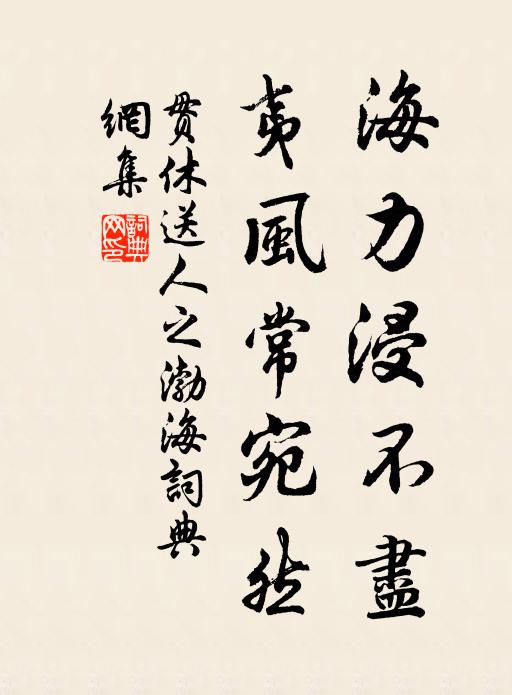 海力浸不盡
夷風常宛然
貫休送人之渤海詞典
網集
詞典網印